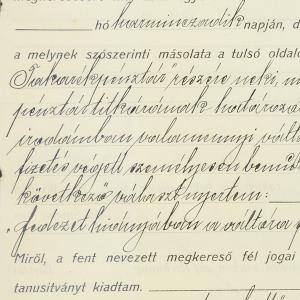 hó harminczadik napján, d
a melynek szószerinti másolata a tulsó oldalo
Takarékpénztár" részére neki, m
pénztár titkárának határoza
irodámban valamennyi vált
fizetés végett személyesen bemut
következő választ nyertem:
"fedezet hiányjában a váltóra f
Miről, a fent nevezett megkereső fél jogai
tanusitványt kiadtam.